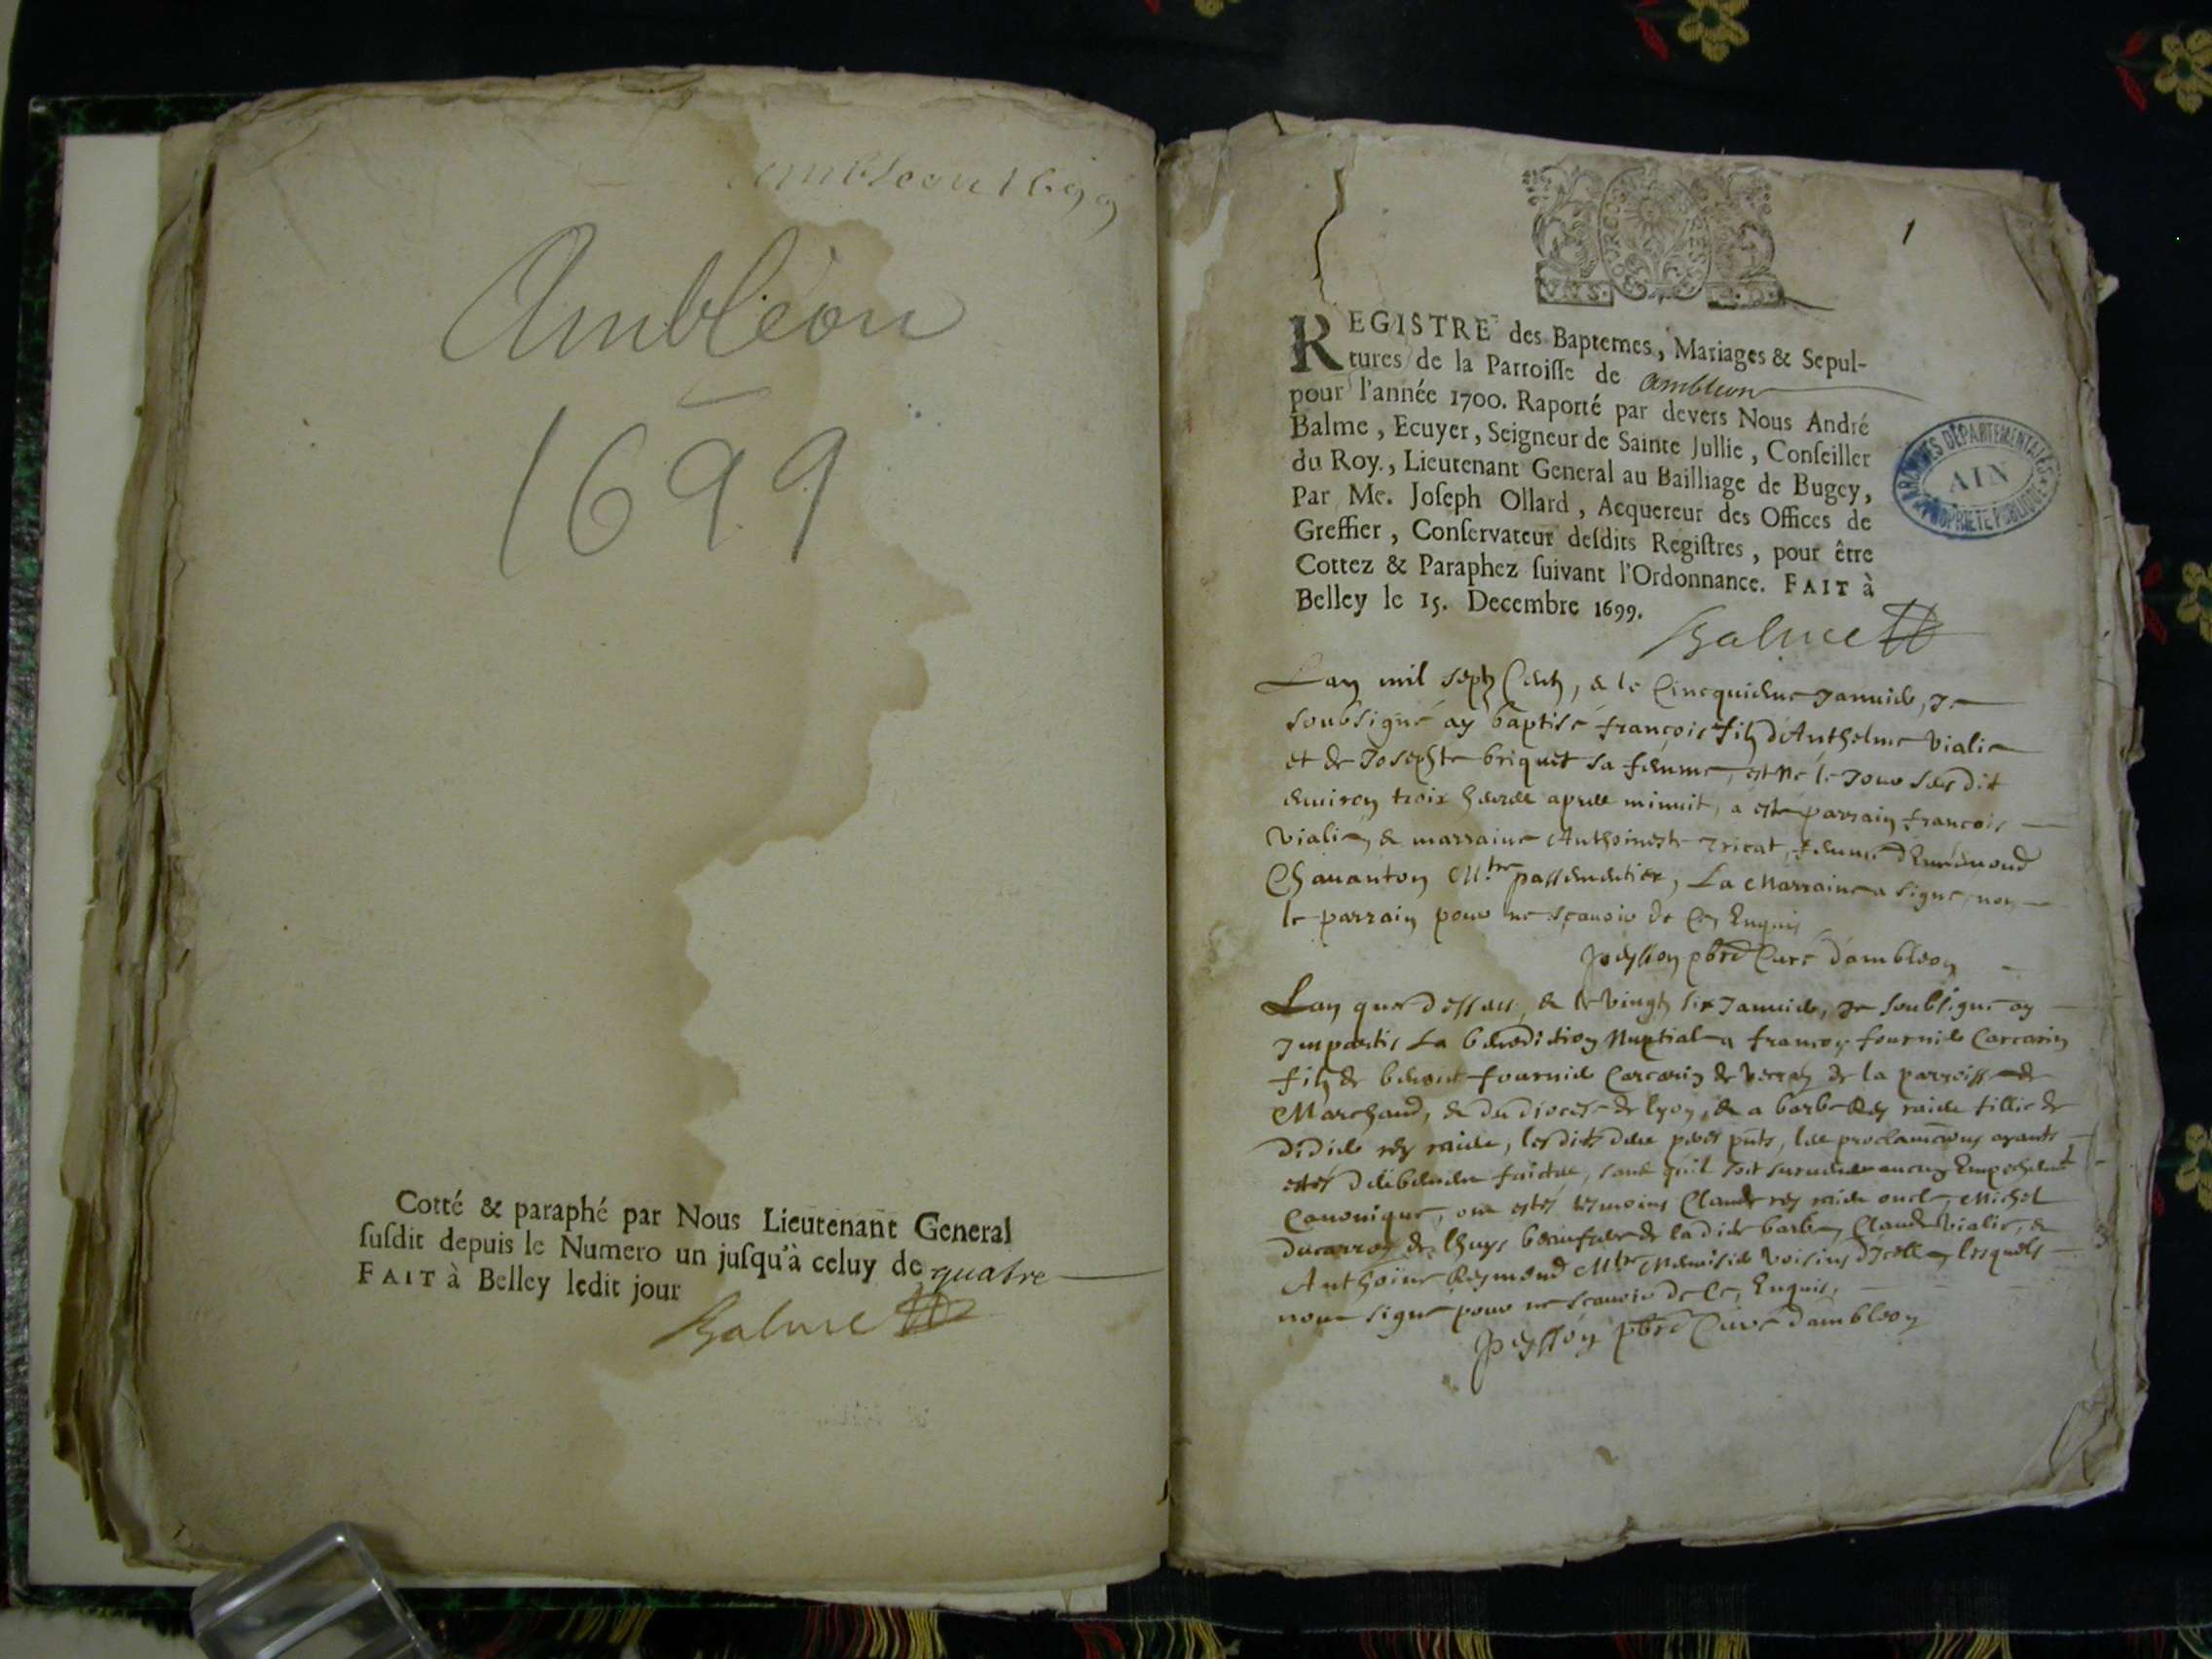 ambleon 1699
Ambléon
1699
Cotté & paraphé par Nous Lieutenant General
ſuſdit depuis le Numero un juſqu'à celuy de quatre
FAIT à Belley ledit jour
Balme
1
REGISTRE des Baptemes, Mariages & Sepul-
tures de la Parroiſſe de Ambleon
pour l'année 1700. Raporté par devers Nous André
Balme, Ecuyer, Seigneur de Sainte Jullie, Conſeiller
du Roy., Lieutenant General au Bailliage de Bugey,
Par Me. Joſeph Ollard, Acquereur des Offices de
Greffier, Conſervateur deſdits Regiſtres, pour être
Cottez & Paraphez ſuivant l'Ordonnance. FAIT à
Belley le 15. Decembre 1699.
Balme
ARCHIVES DÉPARTEMENTALES
AIN
PROPRIÉTÉ PUBLIQUE
Lan mil sept Cent, & le Cincquiesme Januier, Je
soubsigné ay baptisé françois filz d'Anthelme Vialie
et de Josephte briquet sa femme, est né le Jour susdit
enuiron trois heures apres minuit, a esté parrain francois
Vialie, & marraine Anthoineste Tricat, femme d'Ennemond
Chauanton Mtre passementier, La Marraine a signé, non
le parrain pour ne sçauoir de Ce Enquis
Peysson pbre Curé d'ambleon
Lan que dessus, & le vingt six Januier, Je soubsigné ay
Imparti La benediction Nuptiale a françoy fournier Carcarin
filz de benoit fournier Carcarin de de la parroisse de
Marchand, & du diocese de lyon, & a barbe Rey raide fillie de
Didier rey raide, lesdits pnts, les proclamaons ayants
estés faictes, sans quil soit suruenu aucun Empechement
Canonique, ont estés tesmoins Claude rey raide oncle, Michel
Ducarroz de lhuys beaufrere de ladite barbe, Claude Vialie, &
Anthoine Reymond Mtre Menuisier voisins d'Icelle, lesquels
nont signé pour ne scauoir de Ce Enquis,
Peysson pbre Curé d'ambleon